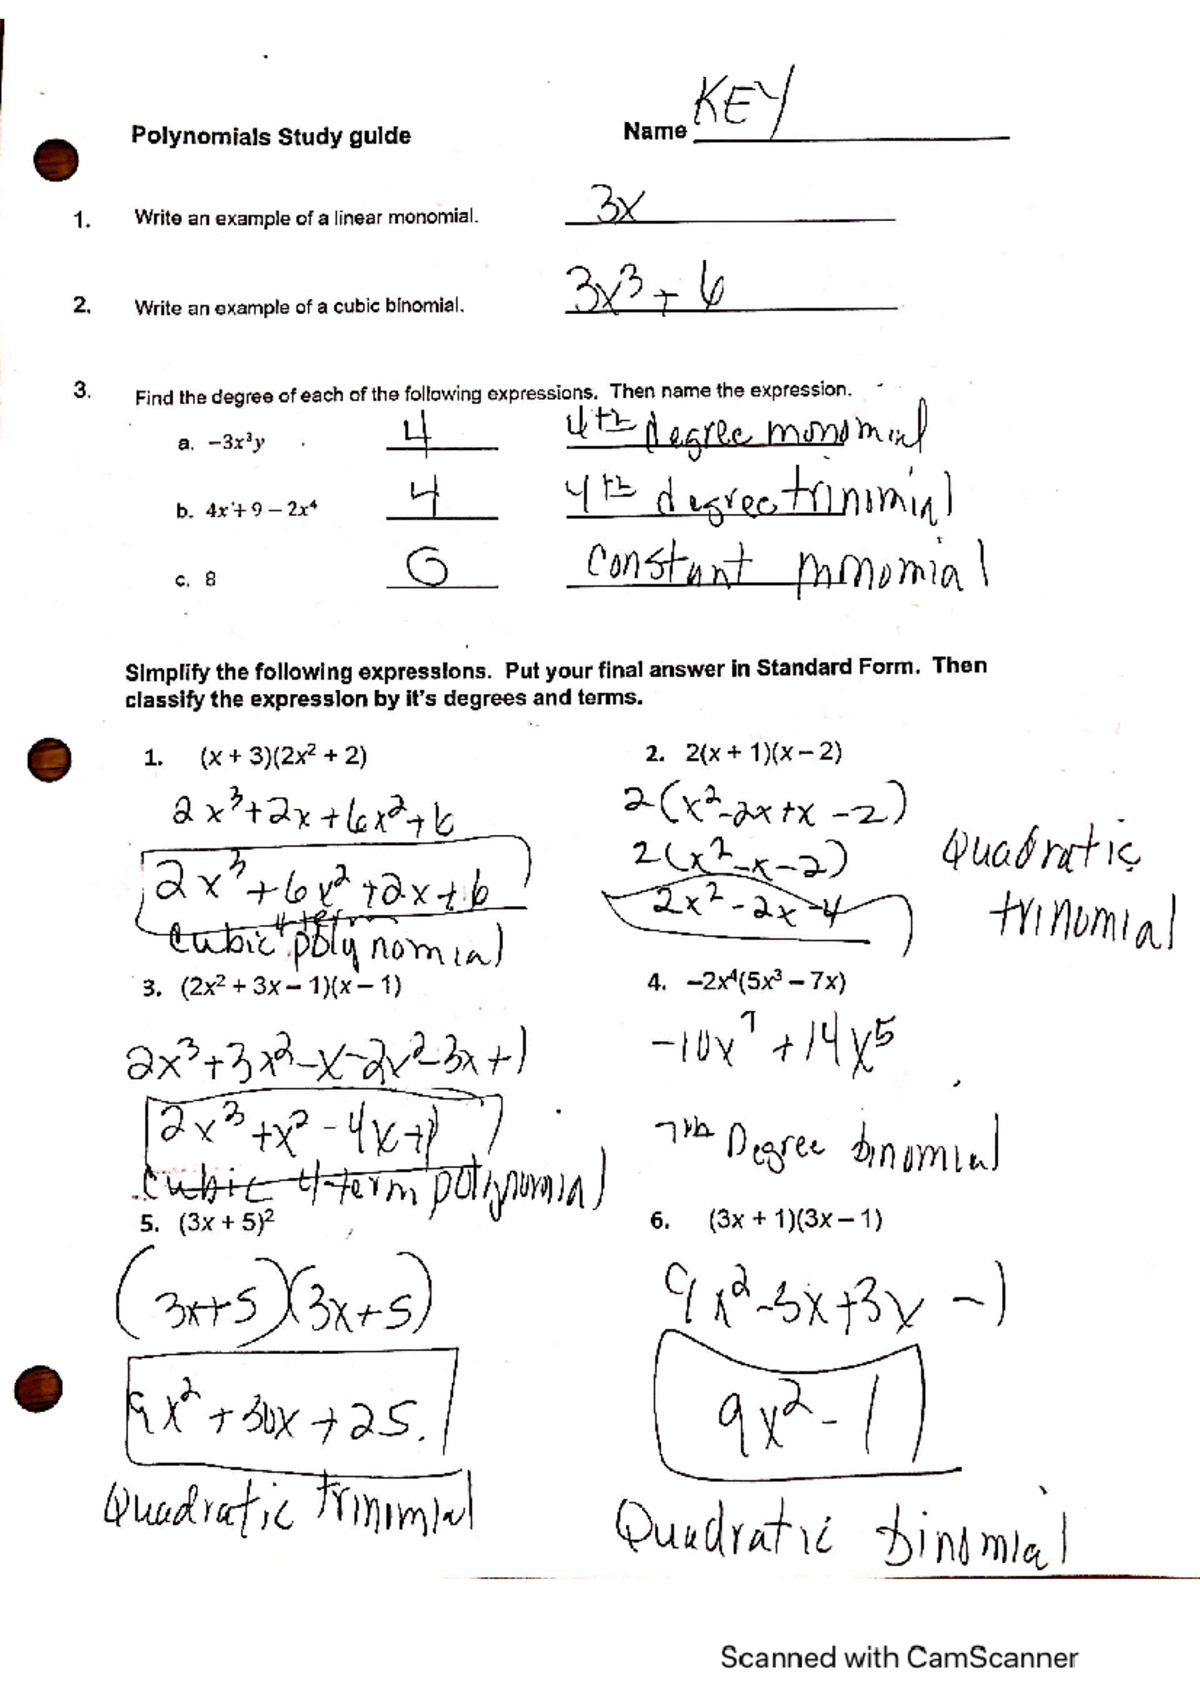 KEY
Polynomials Study guide Name
1. Write an example of a linear monomial. 3x
2. Write an example of a cubic binomial. 3x³ + 6
3. Find the degree of each of the following expressions. Then name the expression.
a. −3x³y 4 4th degree monomial
b. 4x + 9 − 2x⁴ 4 4th degree trinomial
c. 8 0 constant monomial
Simplify the following expressions. Put your final answer in Standard Form. Then
classify the expression by it's degrees and terms.
1. (x + 3)(2x² + 2)
2x³+2x+6x²+6
2x³+6x²+2x+6
4 term
cubic polynomial
2. 2(x + 1)(x − 2)
2(x²-2x+x-2)
2(x²-x-2)
2x²-2x-4
Quadratic
trinomial
3. (2x² + 3x − 1)(x − 1)
2x³+3x²-x-2x²-3x+1
2x³+x²-4x+1
cubic 4-term polynomial
4. −2x⁴(5x³ − 7x)
-10x⁷+14x⁵
7th Degree binomial
5. (3x + 5)²
(3x+5)(3x+5)
9x²+30x+25.
Quadratic trinomial
6. (3x + 1)(3x − 1)
9x²-3x+3x-1
9x²-1
Quadratic binomial
Scanned with CamScanner